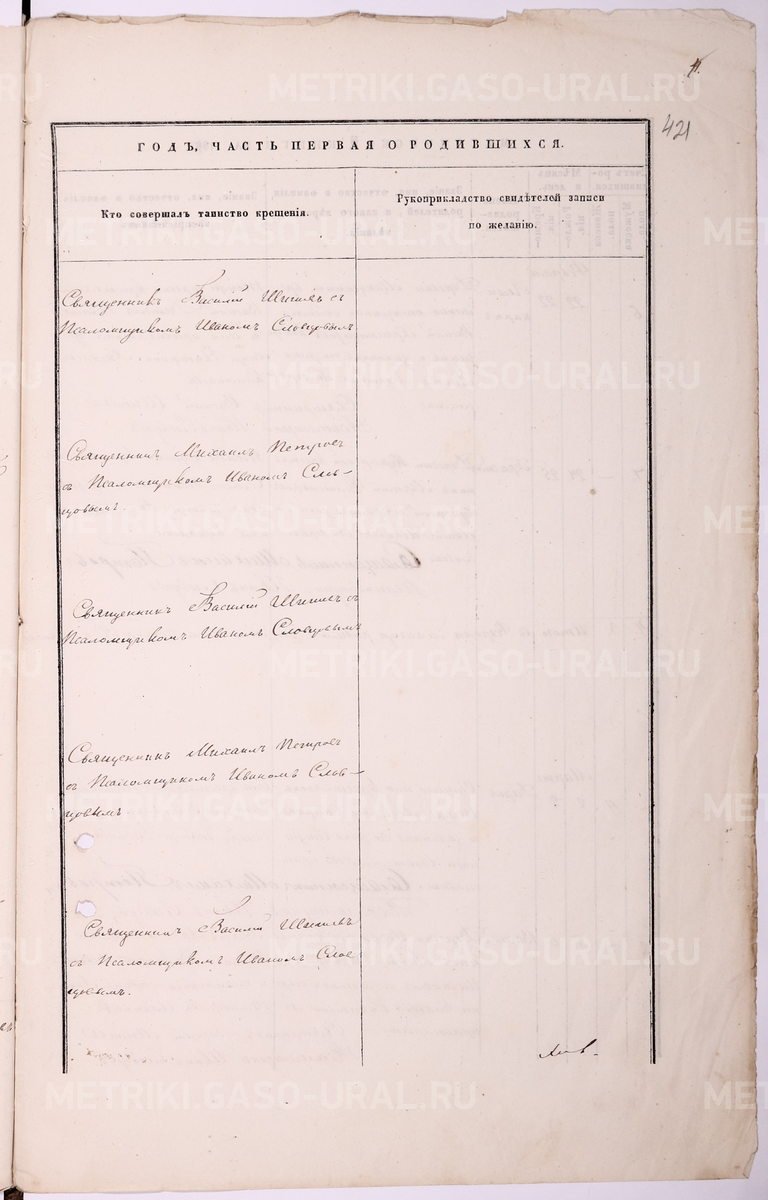 421
ГОДЪ, ЧАСТЬ ПЕРВАЯ О РОДИВШИХСЯ.
Кто совершалъ таинство крещенія.
Рукоприкладство свидѣтелей записи
по желанію.
Священникъ Василій Шишевъ съ
Псаломщикомъ Иваномъ Словцовымъ
Священникъ Михаилъ Петровъ
съ Псаломщикомъ Иваномъ Слов-
цовымъ.
Священникъ Василій Шишевъ съ
Псаломщикомъ Иваномъ Словцовымъ
Священникъ Михаилъ Петровъ
съ Псаломщикомъ Иваномъ Слов-
цовымъ.
Священникъ Василій Шишевъ
съ Псаломщикомъ Иваномъ Слов
цовымъ.
METRIKI.GASO-URAL.RU